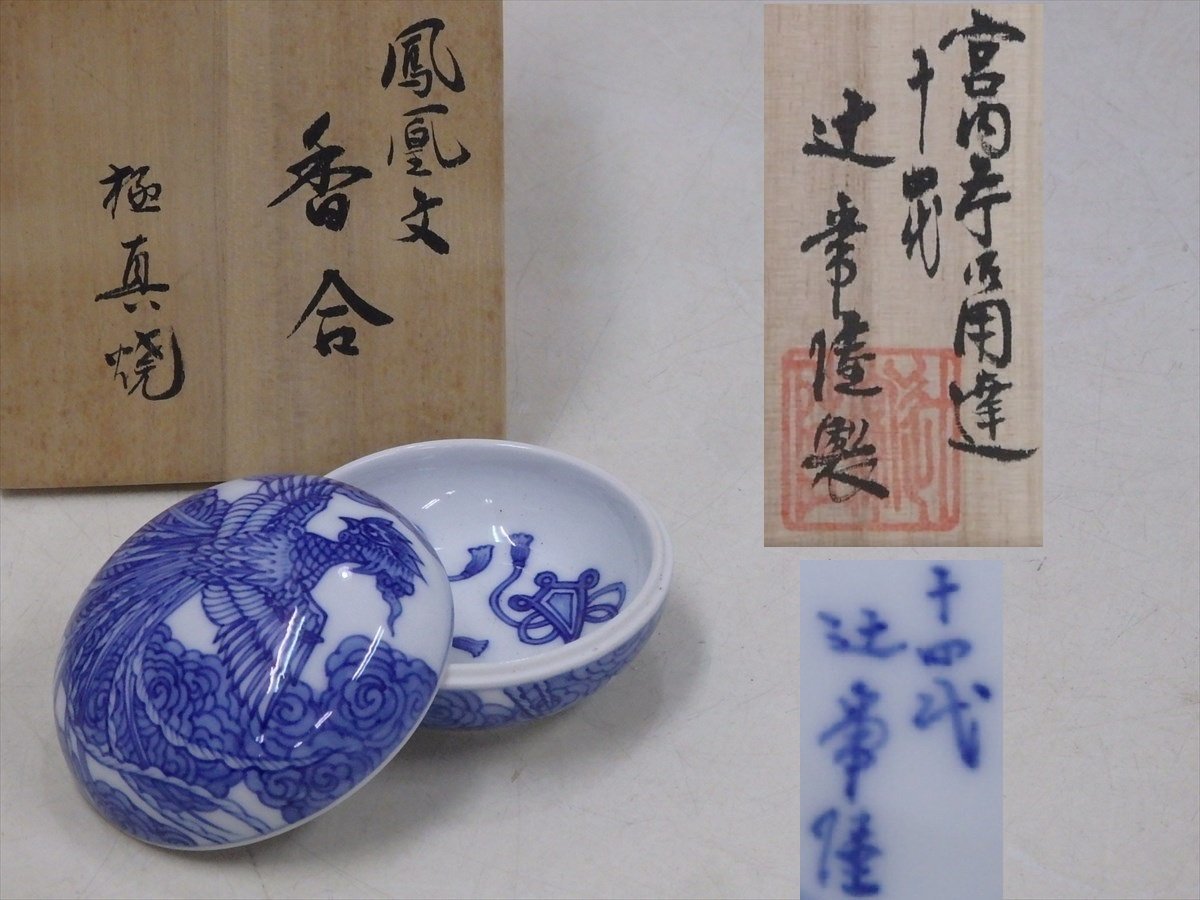 鳳凰文
香合
極真焼
宮内庁御用達
十四代
辻常陸製
十四代
辻常陸